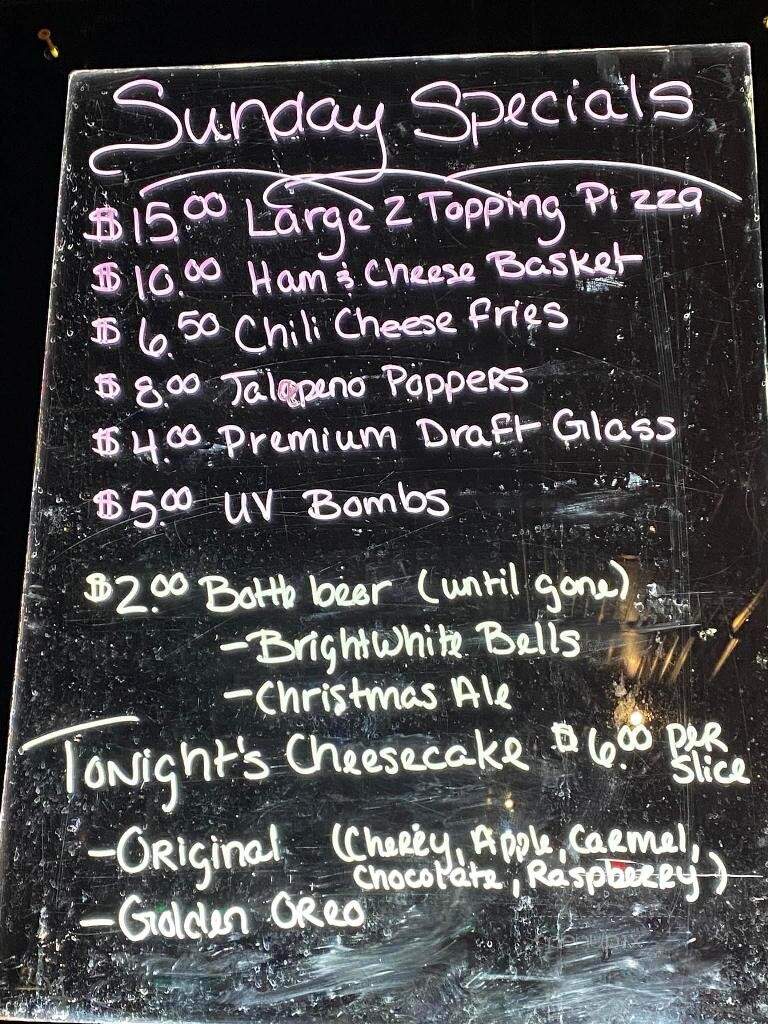 Sunday Specials
$15.00 Large 2 Topping Pizza
$10.00 Ham & Cheese Basket
$6.50 Chili Cheese Fries
$8.00 Jalapeno Poppers
$4.00 Premium Draft Glass
$5.00 UV Bombs
$2.00 Bottle beer (until gone)
- Bright White Bells
- Christmas Ale
Tonight's Cheesecake $6.00 per
Slice
- Original (Cherry, Apple, Carmel,
Chocolate, Raspberry)
- Golden Oreo